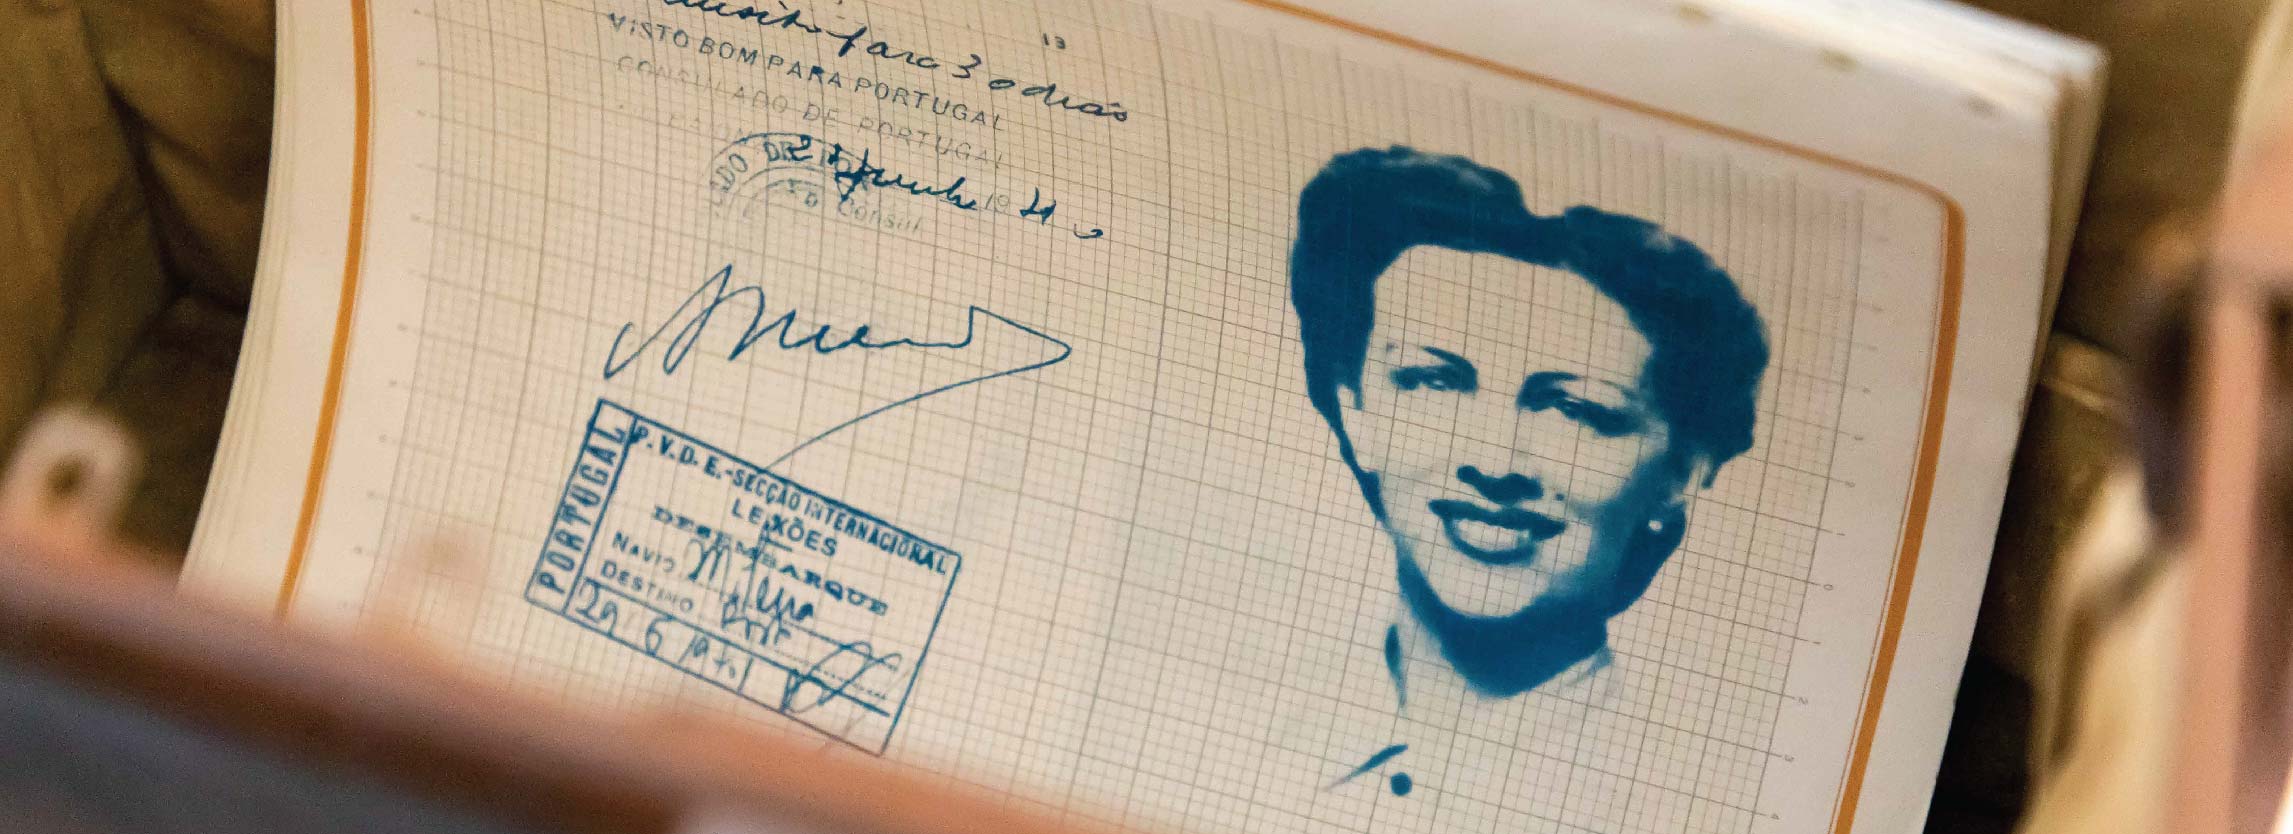 13
para 3 dias
VISTO BOM PARA PORTUGAL
CONSULADO DE PORTUGAL
DO DE
2 Junho 1941
Consul
PORTUGAL
P. V. D. E.-SECÇÃO INTERNACIONAL
LEIXÕES
DESEMBARQUE
NAVIO
DESTINO
29 6 1941